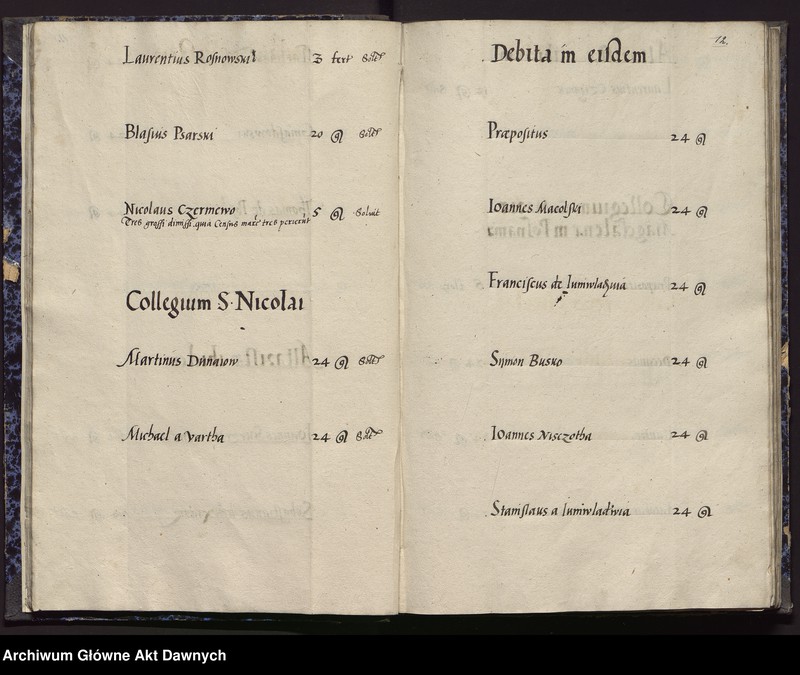 Laurentius Rosnowski 3 fert Solut
Blasius Psarski 20 gr Solut
Nicolaus Czermewo 5 gr Soluit
Tres grossi dimissi quia Census
Collegium S. Nicolai
Martinus Dunaiow 24 gr Solut
Michael a Vartha 24 gr Solut
12.
Debita in eisdem
Præpositus 24 gr
Ioannes Macolski 24 gr
Franciscus de 24 gr
Symon Busko 24 gr
Ioannes Nisczotha 24 gr
Stanislaus a 24 gr
Archiwum Główne Akt Dawnych